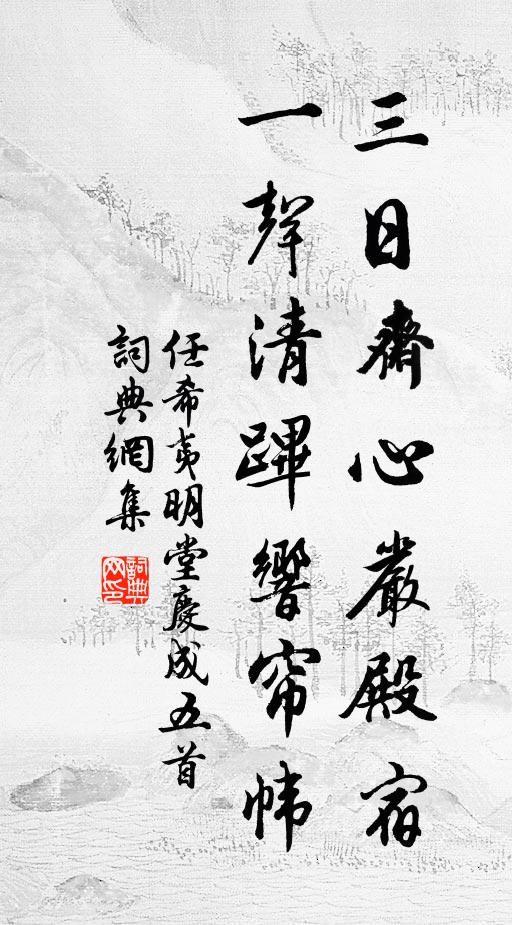 三日齋心嚴殿宿
一聲清蹕響帘幃
任希夷明堂慶成五首
詞典網集
詞典網印